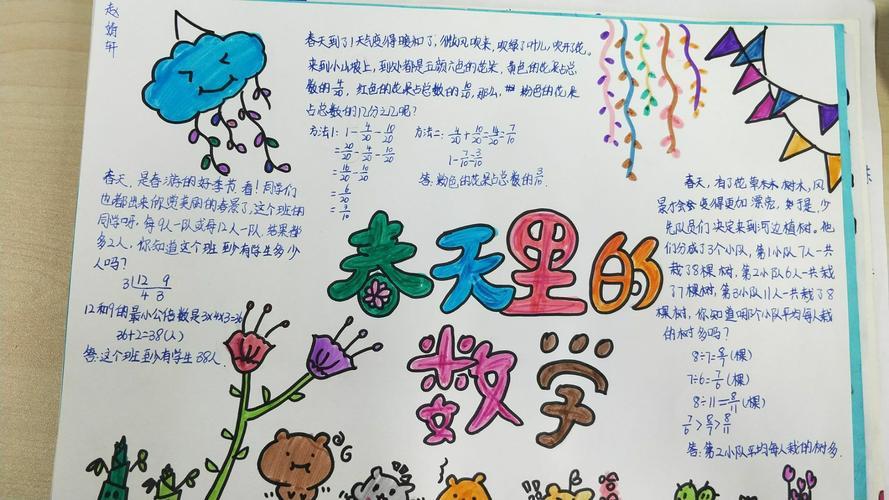 赵婧轩
春天到了天气变得暖和了,微风吹来,吹绿了叶儿,吹开了花。
来到小山坡上,到处都是五颜六色的花朵,黄色的花朵占总
数的4/20,红色的花朵占总数的10/20,那么,粉色的花朵
占总数的几分之几呢?
方法1: 1-4/20-10/20
=20/20-4/20-10/20
=16/20-10/20
=6/20
=3/10
方法二: 4/20+10/20=14/20=7/10
1-7/10=3/10
答:粉色的花朵占总数的3/10.
春天,是春游的好季节,看!同学们
也都出来欣赏美丽的春景了,这个班的
同学呀,每9人一队或每12人一队,结果都
多2人,你知道这个班至少有学生多少
人吗?
3 12 9
4 3
12和9的最小公倍数是3x4x3=36
36+2=38(人)
答:这个班至少有学生38人.
春天里的
数学
春天,有了花草树木,风
景才会变得更加漂亮,于是,少
先队员们决定来到河边植树,他
们分成了3个小队,第1小队7人一共
栽了8棵树,第2小队6人一共栽
了7棵树,第3小队11人一共栽了8
棵树,你知道哪个小队平均每人栽
的树多吗?
8÷7=8/7(棵)
7÷6=7/6(棵)
8÷11=8/11(棵)
7/6>8/7>8/11
答:第2小队平均每人栽的树多.